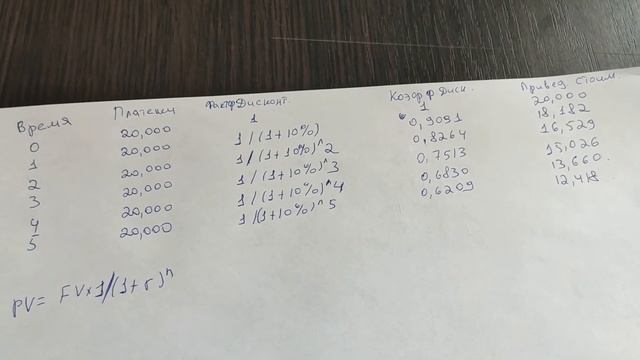 Время Платежи Фактр Дисконт. Коэфф Диск. Привед. стоим.
0 20,000 1 1 20,000
1 20,000 1/(1+10%) 0,9091 18,182
2 20,000 1/(1+10%)^2 0,8264 16,529
3 20,000 1/(1+10%)^3 0,7513 15,026
4 20,000 1/(1+10%)^4 0,6830 13,660.
5 20,000 1/(1+10%)^5 0,6209 12,418
PV= FV×1/(1+r)^n